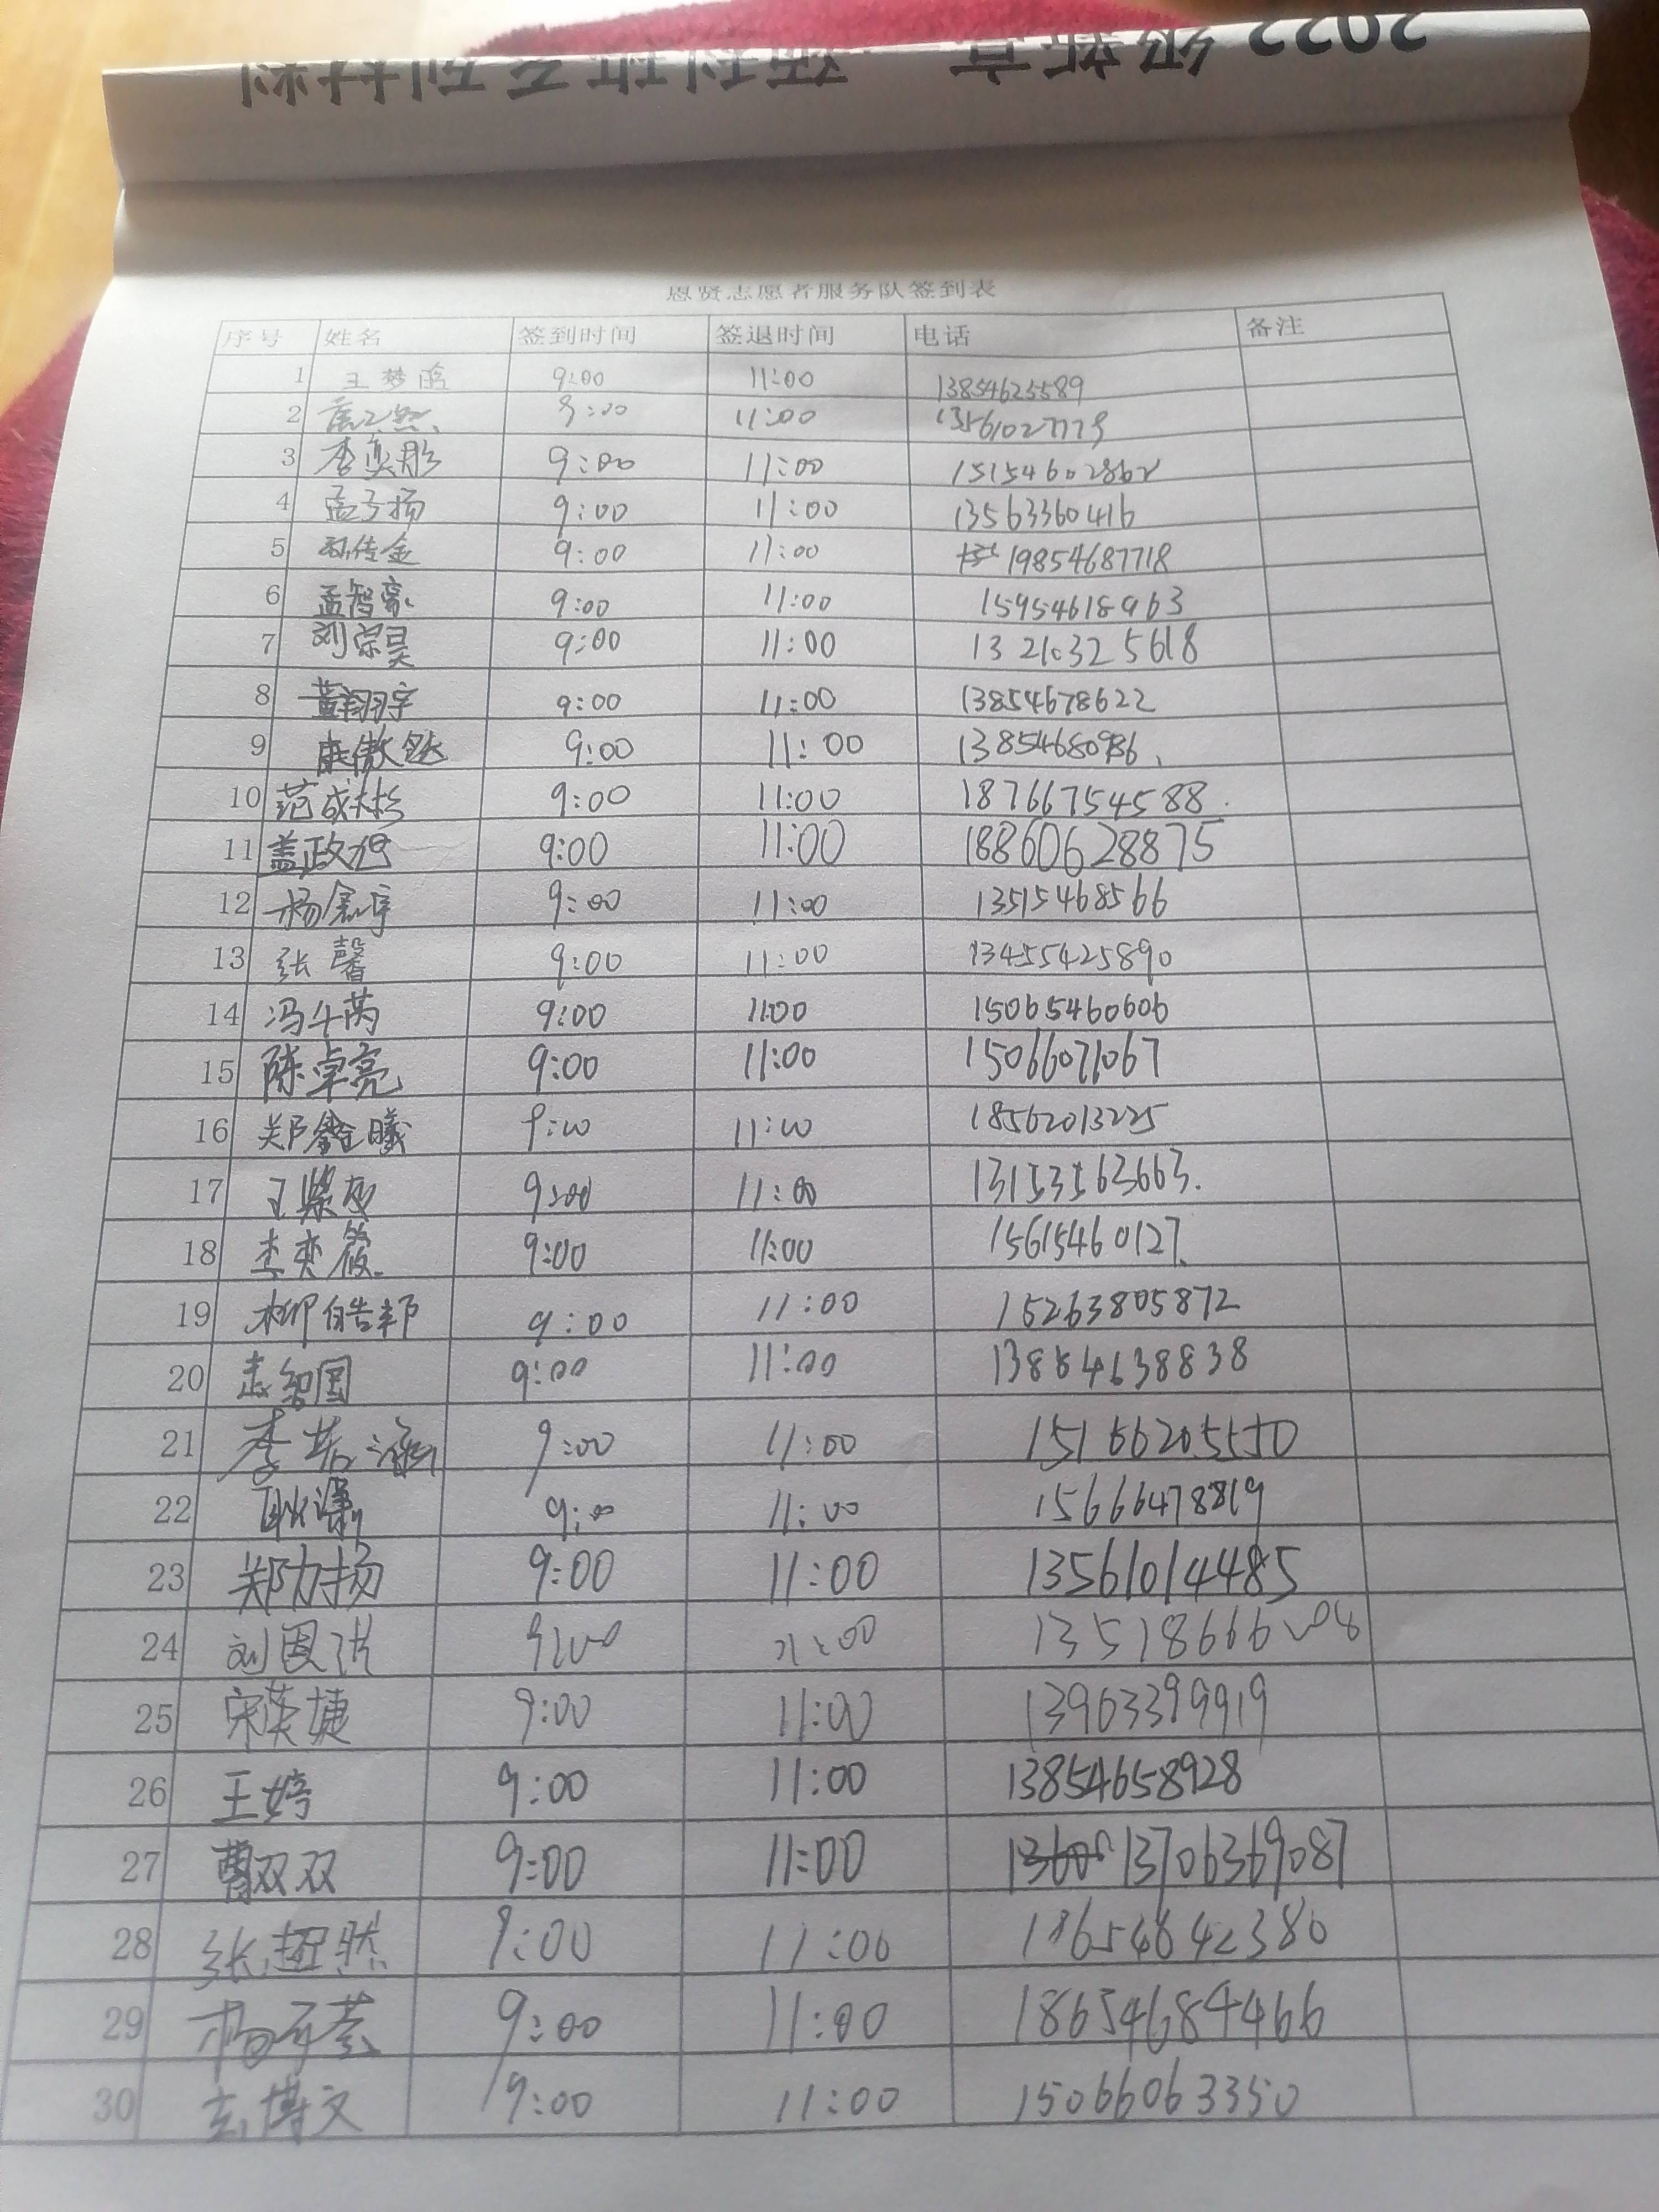 恩贤志愿者服务队签到表
序号 姓名 签到时间 签退时间 电话 备注
1 王梦菡 9:00 11:00 13854625589
2 9:00 11:00 13561027779
3 李奕彤 9:00 11:00 15154602862
4 孟子扬 9:00 11:00 13563360416
5 孙传金 9:00 11:00 19854687718
6 孟智豪 9:00 11:00 15954618963
7 刘宗昊 9:00 11:00 13210325618
8 黄翔宇 9:00 11:00 13854678622
9 9:00 11:00 13854680986
10 范成彬 9:00 11:00 18766754588
11 盖政旭 9:00 11:00 18860628875
12 杨鑫宇 9:00 11:00 13515468566
13 张馨 9:00 11:00 13455425890
14 冯千芮 9:00 11:00 15065460606
15 陈卓亮 9:00 11:00 15066071067
16 郑鑫曦 9:00 11:00 18562013225
17 9:00 11:00 13153563663.
18 李奕筱 9:00 11:00 15615460127.
19 柳皓邦 9:00 11:00 15263805872
20 9:00 11:00 13884638838
21 李若涵 9:00 11:00 15166205550
22 耿潇 9:00 11:00 15666478819
23 郑力扬 9:00 11:00 13561014485
24 9:00 11:00
25 宋英捷 9:00 11:00 13963399919
26 王婷 9:00 11:00 13854658928
27 曹双双 9:00 11:00 13706369087
28 张超然 9:00 11:00 18654642380
29 9:00 11:00 18654684466
30 9:00 11:00 15066063350